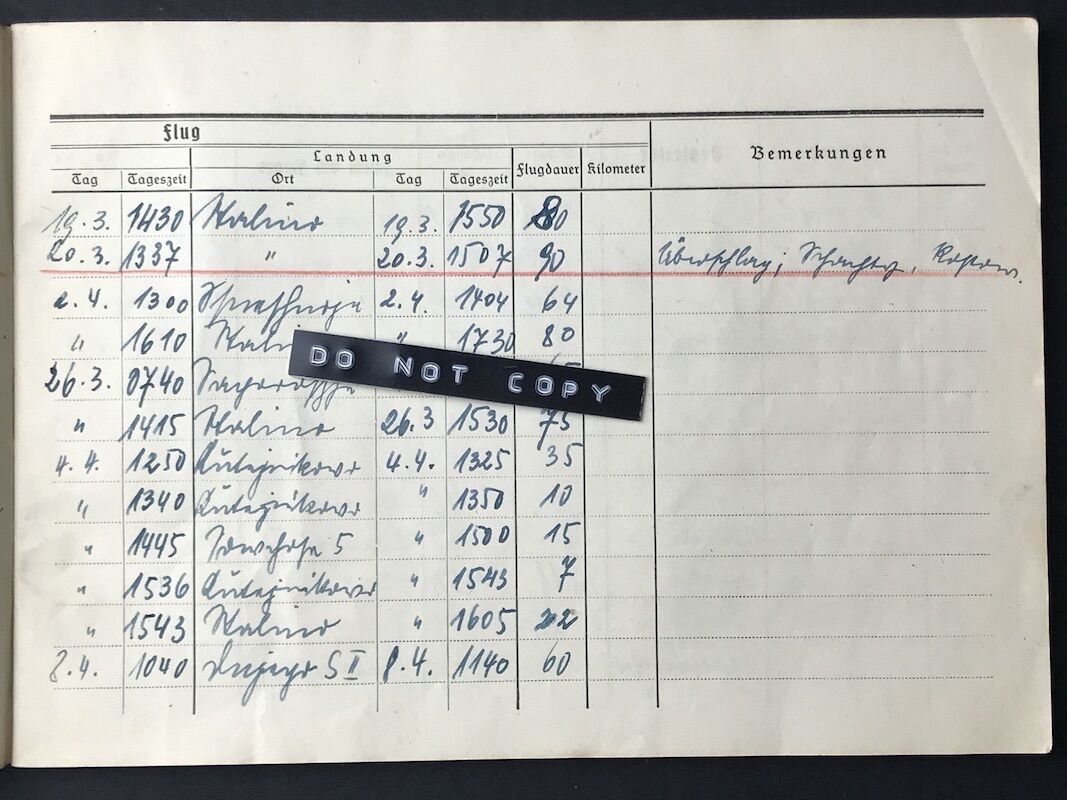 Flug
Landung
Flugdauer Kilometer Bemerkungen
Tag Tageszeit Ort Tag Tageszeit
19.3. 1430 Stalino 19.3. 1550 80
20.3. 1337 " 20.3. 1507 90 Überschlag;
2.4. 1300 2.4. 1404 64
" 1610 " 1730 80
26.3. 0740
DO NOT COPY
" 1415 Stalino 26.3 1530 75
4.4. 1250 Kutejnikowo 4.4. 1325 35
" 1340 Kutejnikowo " 1350 10
" 1445 Sowchose 5 " 1500 15
" 1536 Kutejnikowo " 1543 7
" 1543 Stalino " 1605 22
8.4. 1040 Dnjepr S II 8.4. 1140 60